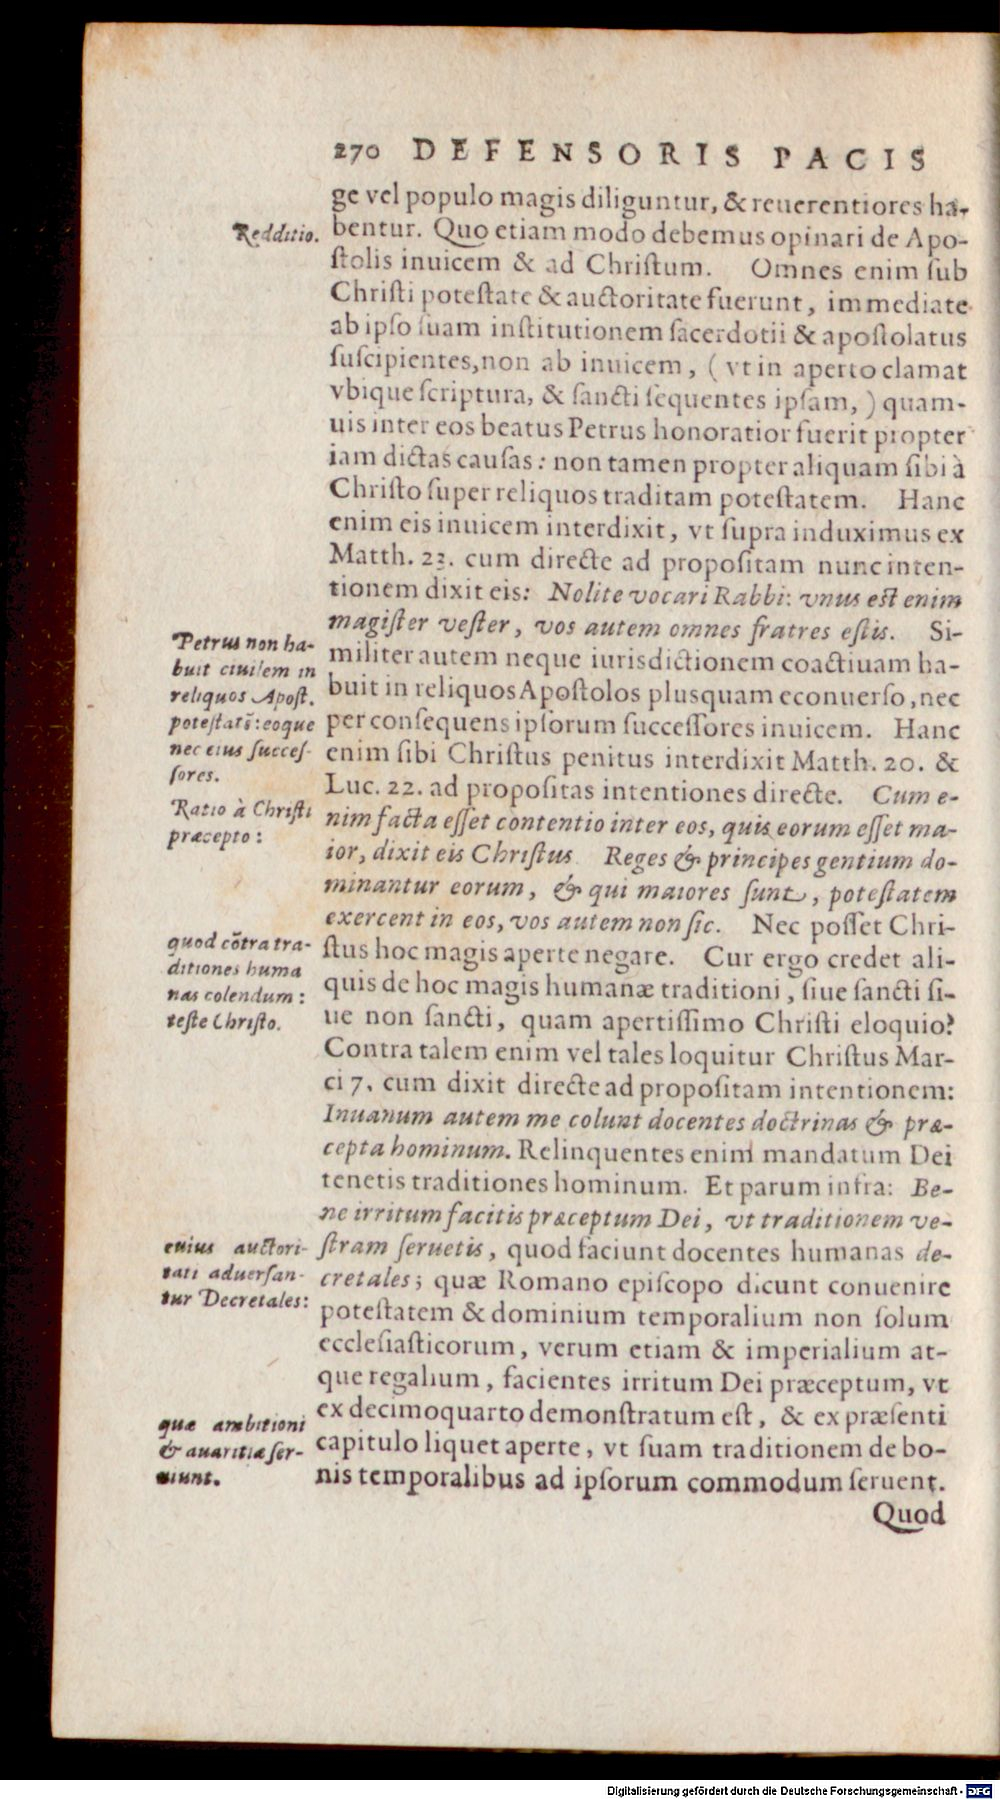 270 DEFENSORIS PACIS
ge vel populo magis diliguntur, & reuerentiores ha-
Redditio.
bentur. Quo etiam modo debemus opinari de Apo-
ſtolis inuicem & ad Chriſtum. Omnes enim ſub
Chriſti poteſtate & auctoritate fuerunt, immediate
ab ipſo ſuam inſtitutionem ſacerdotii & apoſtolatus
ſuſcipientes, non ab inuicem, (vt in aperto clamat
vbique ſcriptura, & ſancti ſequentes ipſam,) quam-
uis inter eos beatus Petrus honoratior fuerit propter
iam dictas cauſas: non tamen propter aliquam ſibi à
Chriſto ſuper reliquos traditam poteſtatem. Hanc
enim eis inuicem interdixit, vt ſupra induximus ex
Matth. 23. cum directe ad propoſitam nunc inten-
tionem dixit eis: Nolite vocari Rabbi: vnus eſt enim
magiſter veſter, vos autem omnes fratres eſtis. Si-
Petrus non ha-
buit ciuilem in
reliquos Apoſt.
poteſtatẽ: eoque
nec eius ſucceſ-
ſores.
militer autem neque iurisdictionem coactiuam ha-
buit in reliquos Apoſtolos plusquam econuerſo, nec
per conſequens ipſorum ſucceſſores inuicem. Hanc
enim ſibi Chriſtus penitus interdixit Matth. 20. &
Luc. 22. ad propoſitas intentiones directe. Cum e-
Ratio à Chriſti
præcepto:
nim facta eſſet contentio inter eos, quis eorum eſſet ma-
ior, dixit eis Chriſtus Reges & principes gentium do-
minantur eorum, & qui maiores ſunt, poteſtatem
exercent in eos, vos autem non ſic. Nec poſſet Chri-
quod cõtra tra-
ditiones huma
nas colendum:
teſte Chriſto.
ſtus hoc magis aperte negare. Cur ergo credet ali-
quis de hoc magis humanæ traditioni, ſiue ſancti ſi-
ue non ſancti, quam apertiſſimo Chriſti eloquio?
Contra talem enim vel tales loquitur Chriſtus Mar-
ci 7. cum dixit directe ad propoſitam intentionem:
Inuanum autem me colunt docentes doctrinas & præ-
cepta hominum. Relinquentes enim mandatum Dei
tenetis traditiones hominum. Et parum infra: Be-
ne irritum facitis præceptum Dei, vt traditionem ve-
cuius auctori-
tati aduerſan-
tur Decretales:
ſtram ſeruetis, quod faciunt docentes humanas de-
cretales; quæ Romano epiſcopo dicunt conuenire
poteſtatem & dominium temporalium non ſolum
eccleſiaſticorum, verum etiam & imperialium at-
que regalium, facientes irritum Dei præceptum, vt
ex decimoquarto demonſtratum eſt, & ex præſenti
quæ ambitioni
& auaritiæ ſer-
uiunt.
capitulo liquet aperte, vt ſuam traditionem de bo-
nis temporalibus ad ipſorum commodum ſeruent.
Quod
Digitalisierung gefördert durch die Deutsche Forschungsgemeinschaft - DFG